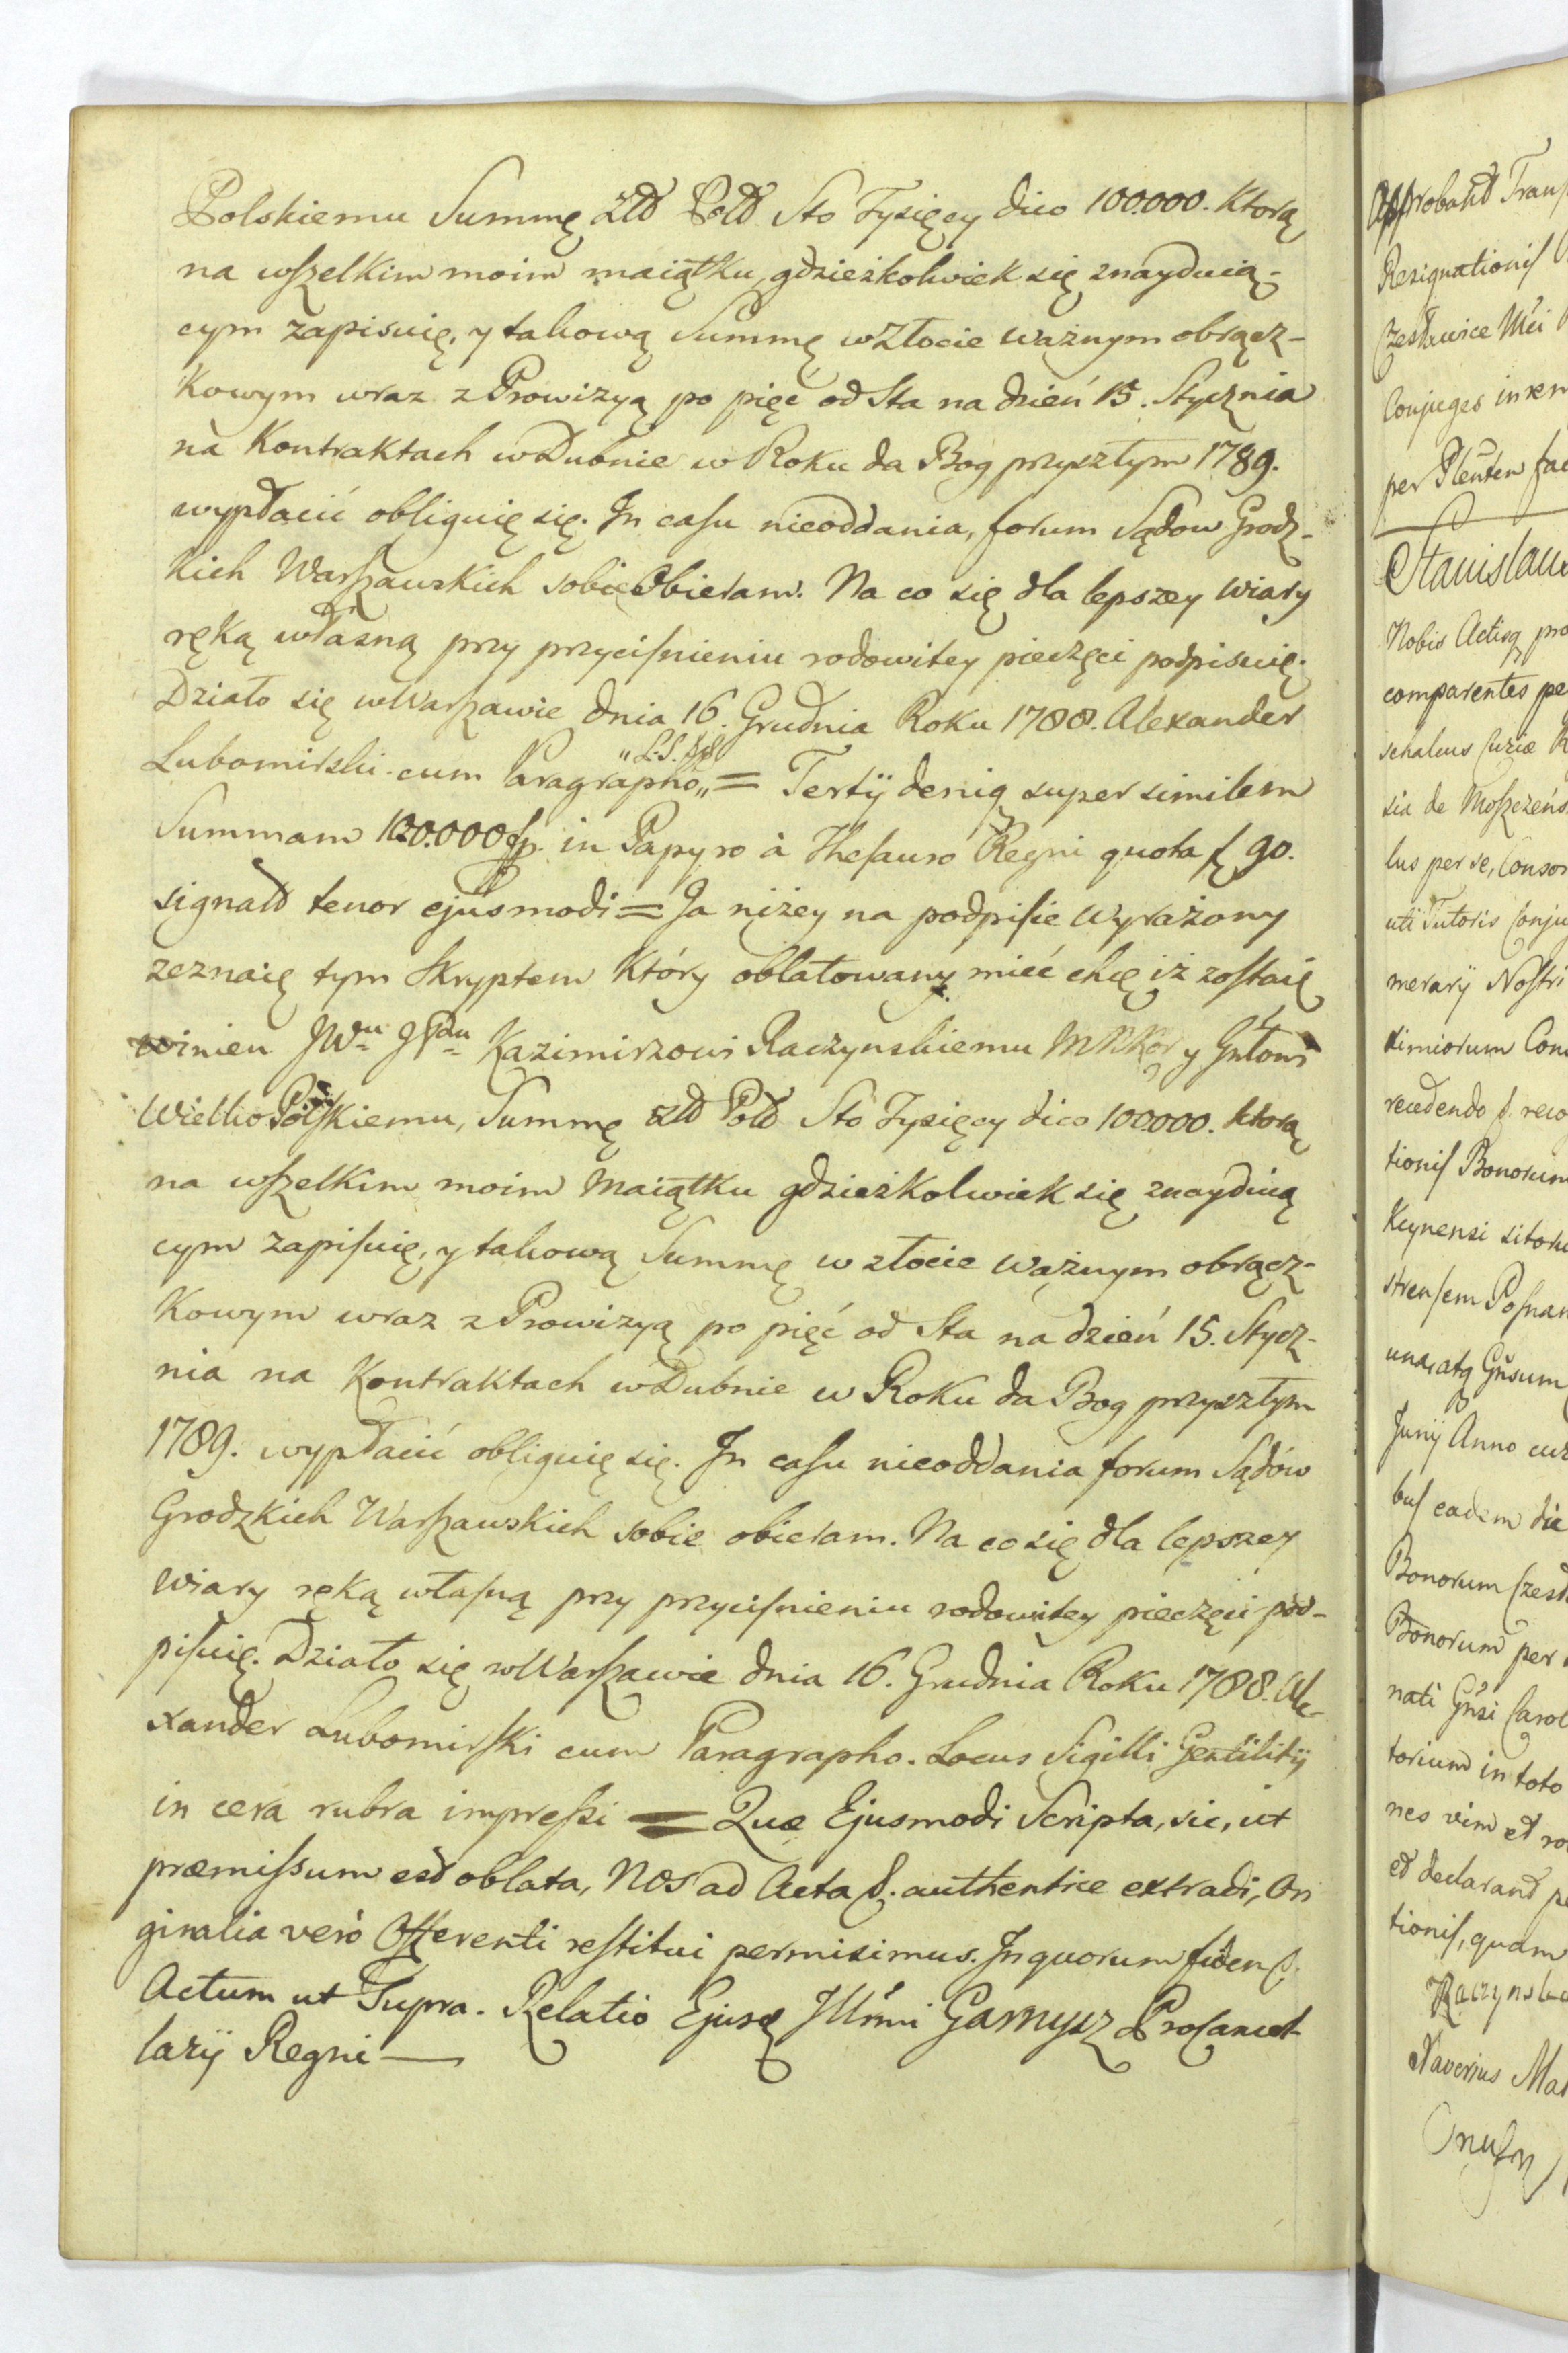 Polskiemu Summę Złł Poll Sto Tysięcy dico 100.000. Ktorą
na wſzelkim moim maiątku, gdzieżkolwiek się znayduią-
cym zapisuię, y takową Summę w Złocie ważnym obrącz-
kowym wraz z Prowizyą po pięć od Sta na dzień 15. Stycznia
na Kontraktach w Dubnie w Roku da Bog przyszłym 1789.
wypłacić obliguię się. In caſu nieoddania, forum Sądow Grodz-
kich Warſzawskich sobie Obieram. Na co się dla lepszey Wiary
ręką własną przy przyciſnieniu rodowitey pieczęci podpisuię.
Działo się w Warſzawie dnia 16. Grudnia Roku 1788. Alexander
Lubomirski cum Paragrapho „ L.S. „ = Tertÿ deniq super similem
Summam 100.000 fp. in Papyro à Theſauro Regni quota f 90.
signatt tenor ejusmodi = Ja niżey na podpiſie wyrażony
zeznaię tym Skryptem Który oblatowany mieć chcę, iż zoſtaię
winien JWu JPanu Kazimirzowi Raczynskiemu MNKor y Gnłowi
Wielko Polſkiemu, Summę złł Poll Sto Tysięcy dico 100.000. ktorą
na wſzelkim moim Maiątku gdzieżkolwiek się znayduią
cym zapiſuię, y takową Summę w złocie ważnym obrącz-
kowym wraz z Prowizyą po pięć od Sta na dzień 15. Stycz-
nia na Kontraktach w Dubnie w Roku da Bog przyszłym
1789. wypłacić obliguię się. In caſu nieoddania forum Sądów
Grodzkich Warſzawskich sobie obieram. Na co się dla lepszey
Wiary ręką właſną przy przyciſnieniu rodowitey pieczęci pod-
piſuię. Działo się w Warſzawie dnia 16. Grudnia Roku 1788. Ale-
xander Lubomirſki cum Paragrapho. Locus Sigilli Gentilitÿ
in cera rubra impreſsi = Quæ Ejusmodi Scripta, sic, ut
præmiſsum est oblata, Nos ad Acta p. authentice extradi, Ori
ginalia verò Offerenti reſtitui permisimus. In quorum fidem p.
Actum ut Supra. Relatio Ejusd Illmi Garnysz ProCancel
larÿ Regni —
Approband Tranſ
Resignationiſ
Czesławice Mci
Conjuges in rem
per Plenten fac
Stanislaus
Nobis Actisq pro
comparentes pe
schalcus Curiæ R
sia de Moſzczeńs
lus per se, Consor
uti Tutoris Conju
merarÿ Noſtri
simiorum Con
recedendo p. reco
tioniſ Bonorum
Kcynensi sitoru
strenſem Poſnan
una, atq Gnsum
Junÿ Anno cur
buſ eadem die
Bonorum Czesł
Bonorum per
nati Gnsi Carol
torium in toto
nes vim et ro
et declarand pe
tioniſ, quam
Raczynski
Xaverius Ma